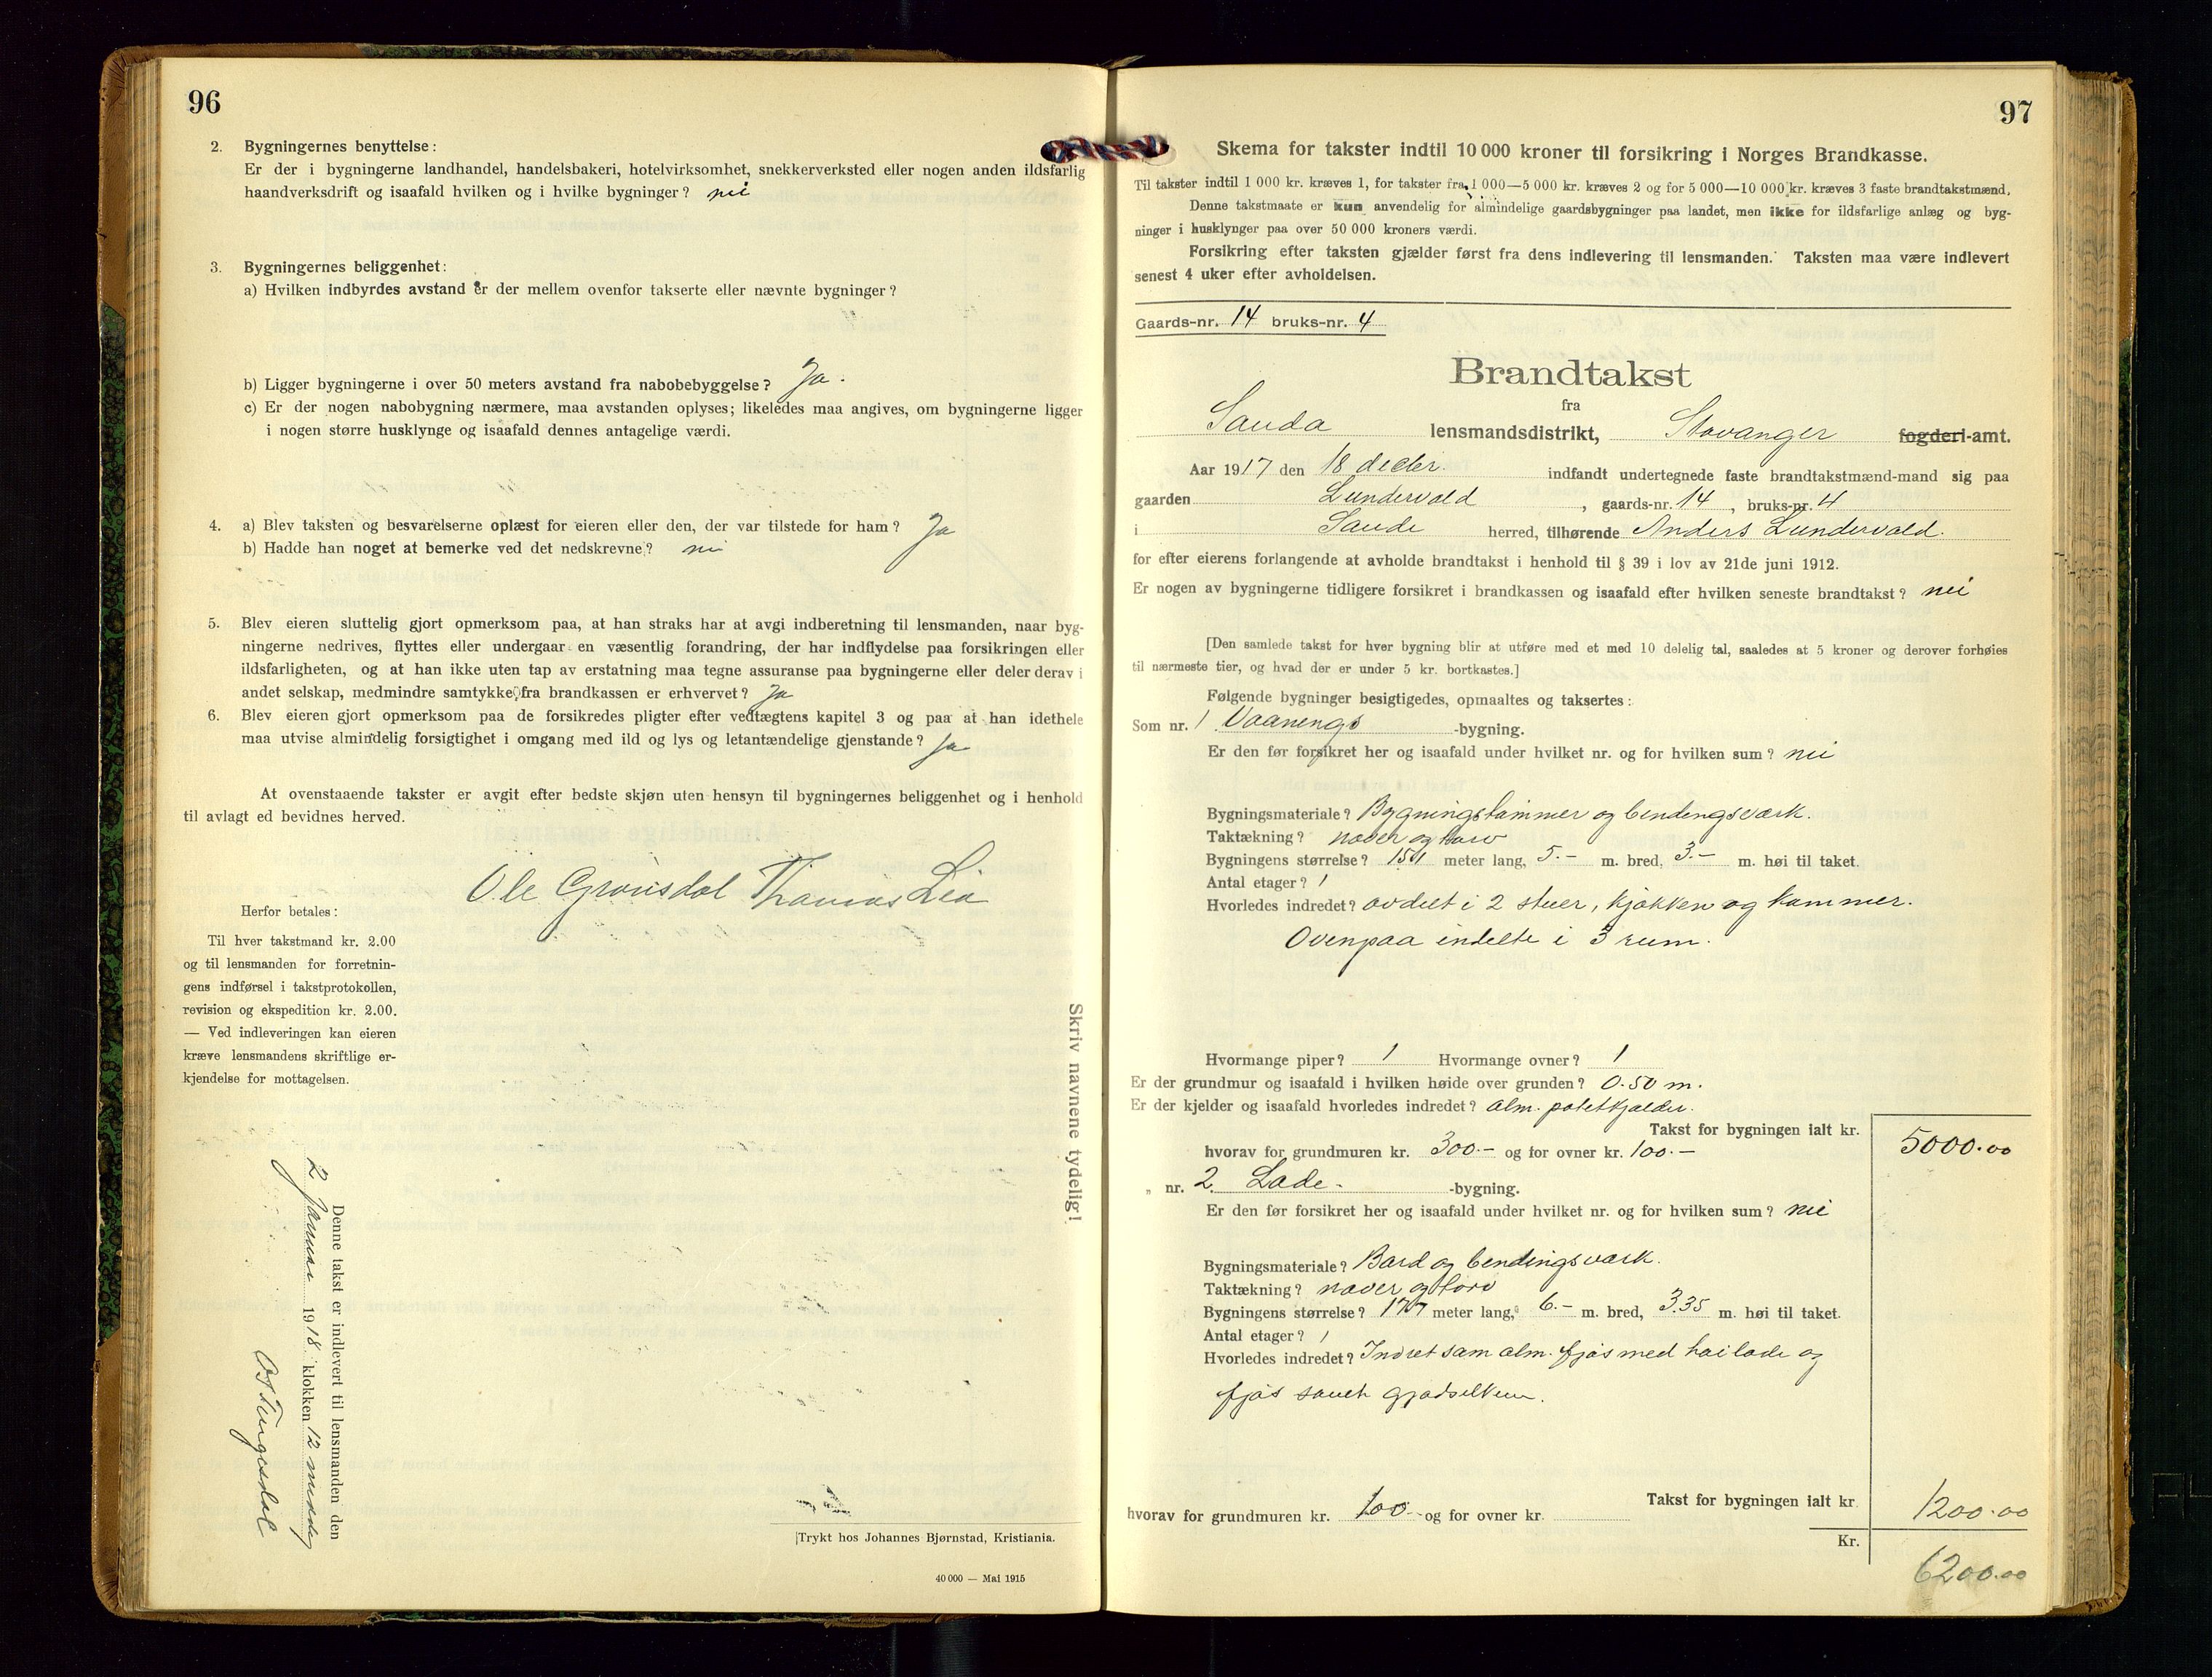 96
2. Bygningernes benyttelse:
Er der i bygningerne landhandel, handelsbakeri, hotelvirksomhet, snekkerverksted eller nogen anden ildsfarlig
haandverksdrift og isaafald hvilken og i hvilke bygninger? nei
3. Bygningernes beliggenhet:
a) Hvilken indbyrdes avstand er der mellem ovenfor takserte eller nævnte bygninger?
b) Ligger bygningerne i over 50 meters avstand fra nabobebyggelse? Ja.
c) Er der nogen nabobygning nærmere, maa avstanden oplyses; likeledes maa angives, om bygningerne ligger
i nogen større husklynge og isaafald dennes antagelige værdi.
4. a) Blev taksten og besvarelserne oplæst for eieren eller den, der var tilstede for ham? Ja
b) Hadde han noget at bemerke ved det nedskrevne? nei
5. Blev eieren sluttelig gjort opmerksom paa, at han straks har at avgi indberetning til lensmanden, naar byg-
ningerne nedrives, flyttes eller undergaar en væsentlig forandring, der har indflydelse paa forsikringen eller
ildsfarligheten, og at han ikke uten tap av erstatning maa tegne assuranse paa bygningerne eller deler derav i
andet selskap, medmindre samtykke fra brandkassen er erhvervet? Ja
6. Blev eieren gjort opmerksom paa de forsikredes pligter efter vedtægtens kapitel 3 og paa at han idethele
maa utvise almindelig forsigtighet i omgang med ild og lys og letantændelige gjenstande? Ja
At ovenstaaende takster er avgit efter bedste skjøn uten hensyn til bygningernes beliggenhet og i henhold
til avlagt ed bevidnes herved.
Ole Grønsdal Thomas Lia
Herfor betales:
Til hver takstmand kr. 2.00
og til lensmanden for forretnin-
gens indførsel i takstprotokollen,
revision og ekspedition kr. 2.00.
— Ved indleveringen kan eieren
kræve lensmandens skriftlige er-
kjendelse for mottagelsen.
Skriv navnene tydelig!
Denne takst er indlevert til lensmanden den
2 januar 1918 klokken 12 middag
Trykt hos Johannes Bjørnstad, Kristiania.
40 000 — Mai 1915
97
Skema for takster indtil 10 000 kroner til forsikring i Norges Brandkasse.
Til takster indtil 1 000 kr. kræves 1, for takster fra 1 000—5 000 kr. kræves 2 og for 5 000—10 000 kr. kræves 3 faste brandtakstmænd.
Denne takstmaate er kun anvendelig for almindelige gaardsbygninger paa landet, men ikke for ildsfarlige anlæg og byg-
ninger i husklynger paa over 50 000 kroners værdi.
Forsikring efter taksten gjælder først fra dens indlevering til lensmanden. Taksten maa være indlevert
senest 4 uker efter avholdelsen.
Gaards-nr. 14 bruks-nr. 4
Brandtakst
fra
Sauda lensmandsdistrikt, Stavanger fogderi-amt.
Aar 1917 den 18 decbr. indfandt undertegnede faste brandtakstmænd-mand sig paa
gaarden Lundervold, gaards-nr. 14, bruks-nr. 4
i Saude herred, tilhørende Anders Lundervold.
for efter eierens forlangende at avholde brandtakst i henhold til § 39 i lov av 21de juni 1912.
Er nogen av bygningerne tidligere forsikret i brandkassen og isaafald efter hvilken seneste brandtakst? nei
[Den samlede takst for hver bygning blir at utføre med et med 10 delelig tal, saaledes at 5 kroner og derover forhøies
til nærmeste tier, og hvad der er under 5 kr. bortkastes.]
Følgende bygninger besigtigedes, opmaaltes og taksertes:
Som nr. 1 Vaanengs -bygning.
Er den før forsikret her og isaafald under hvilket nr. og for hvilken sum? nei
Bygningsmateriale? Bygningstømmer og bendingsværk.
Taktækning? næver og torv
Bygningens størrelse? meter lang, 5.- m. bred, 3.- m. høi til taket.
Antal etager? 1
Hvorledes indredet? avdelt i 2 stuer, kjøkken og kammer.
Ovenpaa indelte i 3 rum.
Hvormange piper? 1 Hvormange ovner? 1
Er der grundmur og isaafald i hvilken høide over grunden? 0.50 m.
Er der kjelder og isaafald hvorledes indredet? alm. potetkjælder.
Takst for bygningen ialt kr. 5000.00
hvorav for grundmuren kr. 300.- og for ovner kr. 100.-
" nr. 2. Lade- -bygning.
Er den før forsikret her og isaafald under hvilket nr. og for hvilken sum? nei
Bygningsmateriale? Bord og bendingsværk.
Taktækning? næver og torv
Bygningens størrelse? meter lang, 6.- m. bred, 3.35 m. høi til taket.
Antal etager? 1
Hvorledes indredet? Indret som alm. fjøs med høilade og
fjøs samt gjødselkum.
Takst for bygningen ialt kr 1200.00
hvorav for grundmuren kr. 100.- og for ovner kr.
Kr. 6200.00